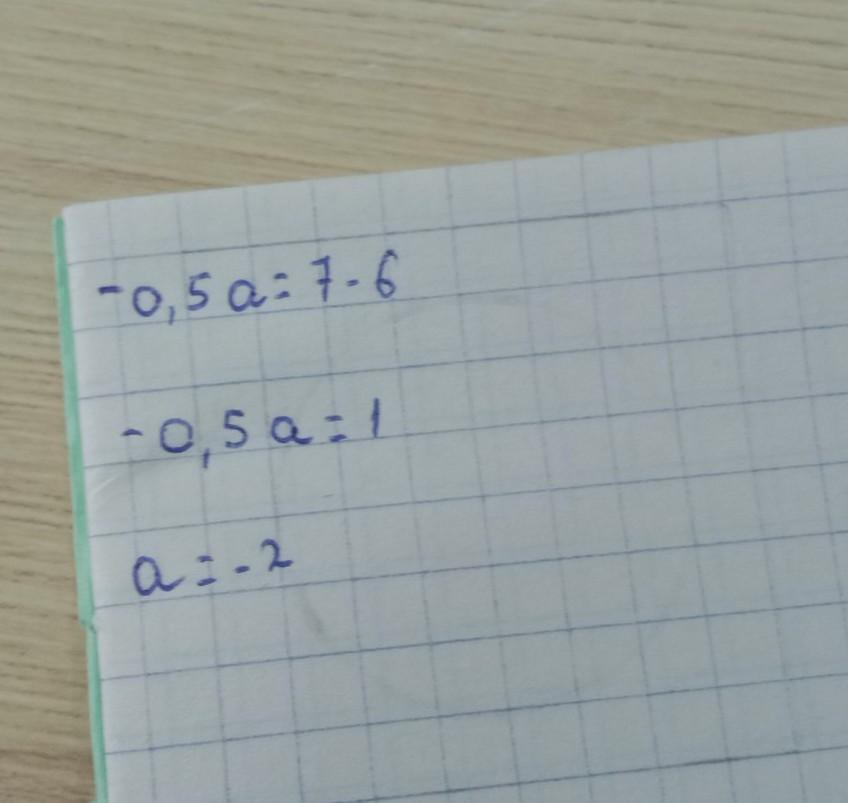 -0,5a=7-6
-0,5a=1
a=-2